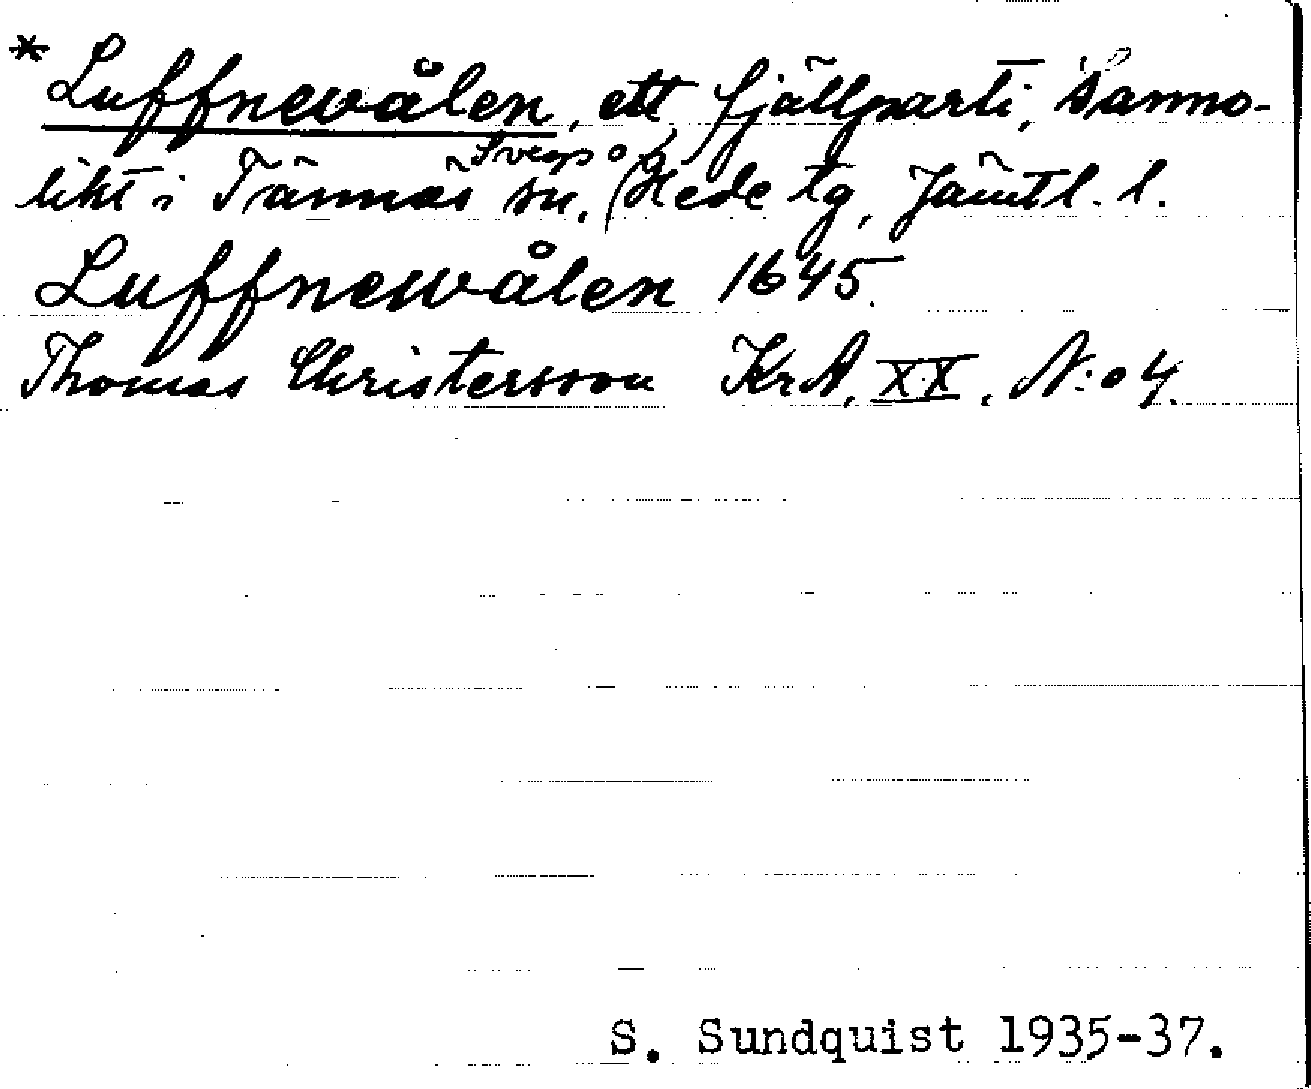 * Luffnewålen, ett fjällparti, Sanno-
likt i Tännäs sn, Hede tg, Jämtl. l.
Luffnewålen 1645.
Thomas Christersson KrA, XX, N:o 4.
S. Sundquist 1935-37.